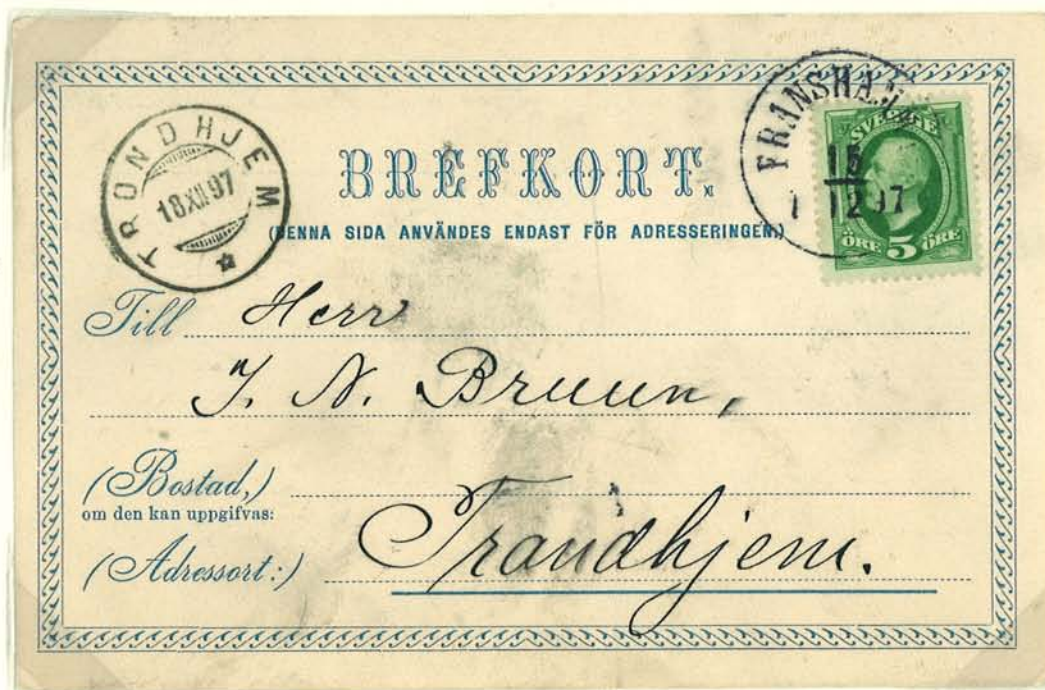 TRONDHJEM
18 XII 97
BREFKORT.
(DENNA SIDA ANVÄNDES ENDAST FÖR ADRESSERINGEN.)
SVERIGE
ÖRE 5 ÖRE
15
12 97
Till Herr
J. N. Bruun,
(Bostad,)
om den kan uppgifvas:
(Adressort:) Trondhjem.